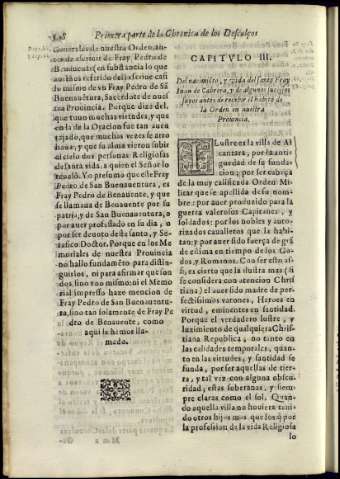 Primera parte de la Chronica de los Descalços
General de nuestra Orden, an-
tes de escriuir de Fray Pedro de
Benauente (en substancia lo que
auemos referido del
dize de vn Fray Pedro de Sã
Buenauentura, Sacerdote de nuestra
Prouincia. Porque dize del,
que tuuo muchas virtudes, y que
en la de la Oracion fue tan auen
tajado, que muchas vezes se arro
baua, y que su alma vieron subir
al cielo dos personas Religiosas
de santa vida, a quien el Señor lo
reueló. Yo presumo que este Fray
Pedro de San Buenauentura, es
Fray Pedro de Benauente, y que
se llamaua de Benauente por su
patria, y de San Buenauentura, o
por auer professado en su dia, o
por ser deuoto deste santo, y Se-
rafico Doctor. Porque en los Me
moriales de nuestra Prouincia
no hallo fundamẽto para distin-
guirlos, ni para afirmar que son
dos, sino vno mismo: ni el Memo
rial impresso haze mencion de
Fray Pedro de San Buenauentu-
ra, sino tan solamente de Fray Pe
dro de Benauente, como
aqui la hemos lla-
mado.
CAPITVLO III.
Del nacimiẽto, y vida del santo Fray
Iuan de Cabrera, y de algunos sucessos
suyos antes de recebir el habito de
la Orden en nuestra
Prouincia.
ILustre es la villa de Al
cantara, por la anti-
guedad de su funda-
cion; por ser cabeça
de la muy calificada Orden Mili-
tar que se apellida de su nom-
bre: por auer produzido para la
guerra valerosos Capitanes, y
soldados: por los nobles y auto-
rizados caualleros que la habi-
tan: y por auer sido fuerça de grã
de estima en tiempo de los Go-
dos, y Romanos. Con ser esto as-
si, es cierto que la ilustra mas (si
se considera con atencion Christ
iana) el auer sido madre de per-
fectissimos varones, Heroes en
virtud, eminentes en santidad.
Porque el verdadero lustre, y
luzimiento de qualquiera Chris-
tiana Republica, no tanto en
las calidades temporales, quan-
to en las virtudes, y santidad se
funda, por ser aquellas de tier-
ra, y tal vez con alguna obscu-
ridad, estas soberanas, y siem-
pre claras como el sol. Quan-
do aquella villa no huuiera teni-
do otros hijos mas que los q̃ por
la profession de la vida Religiosa
lo